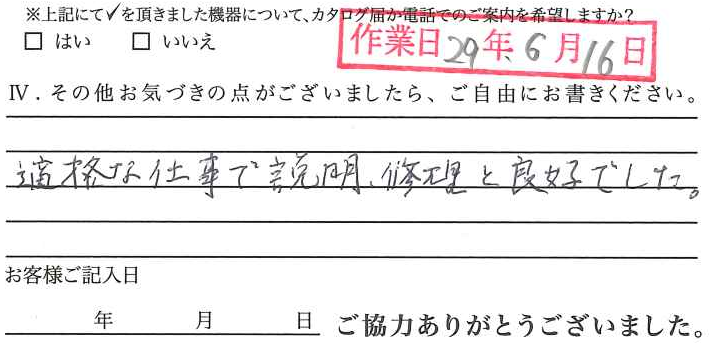 ※上記にて✓を頂きました機器について、カタログ届か電話でのご案内を希望しますか？
□ はい □ いいえ
作業日29年6月16日
Ⅳ．その他お気づきの点がございましたら、ご自由にお書きください。
適格な仕事で説明、修理と良好でした。
お客様ご記入日
年 月 日
ご協力ありがとうございました。